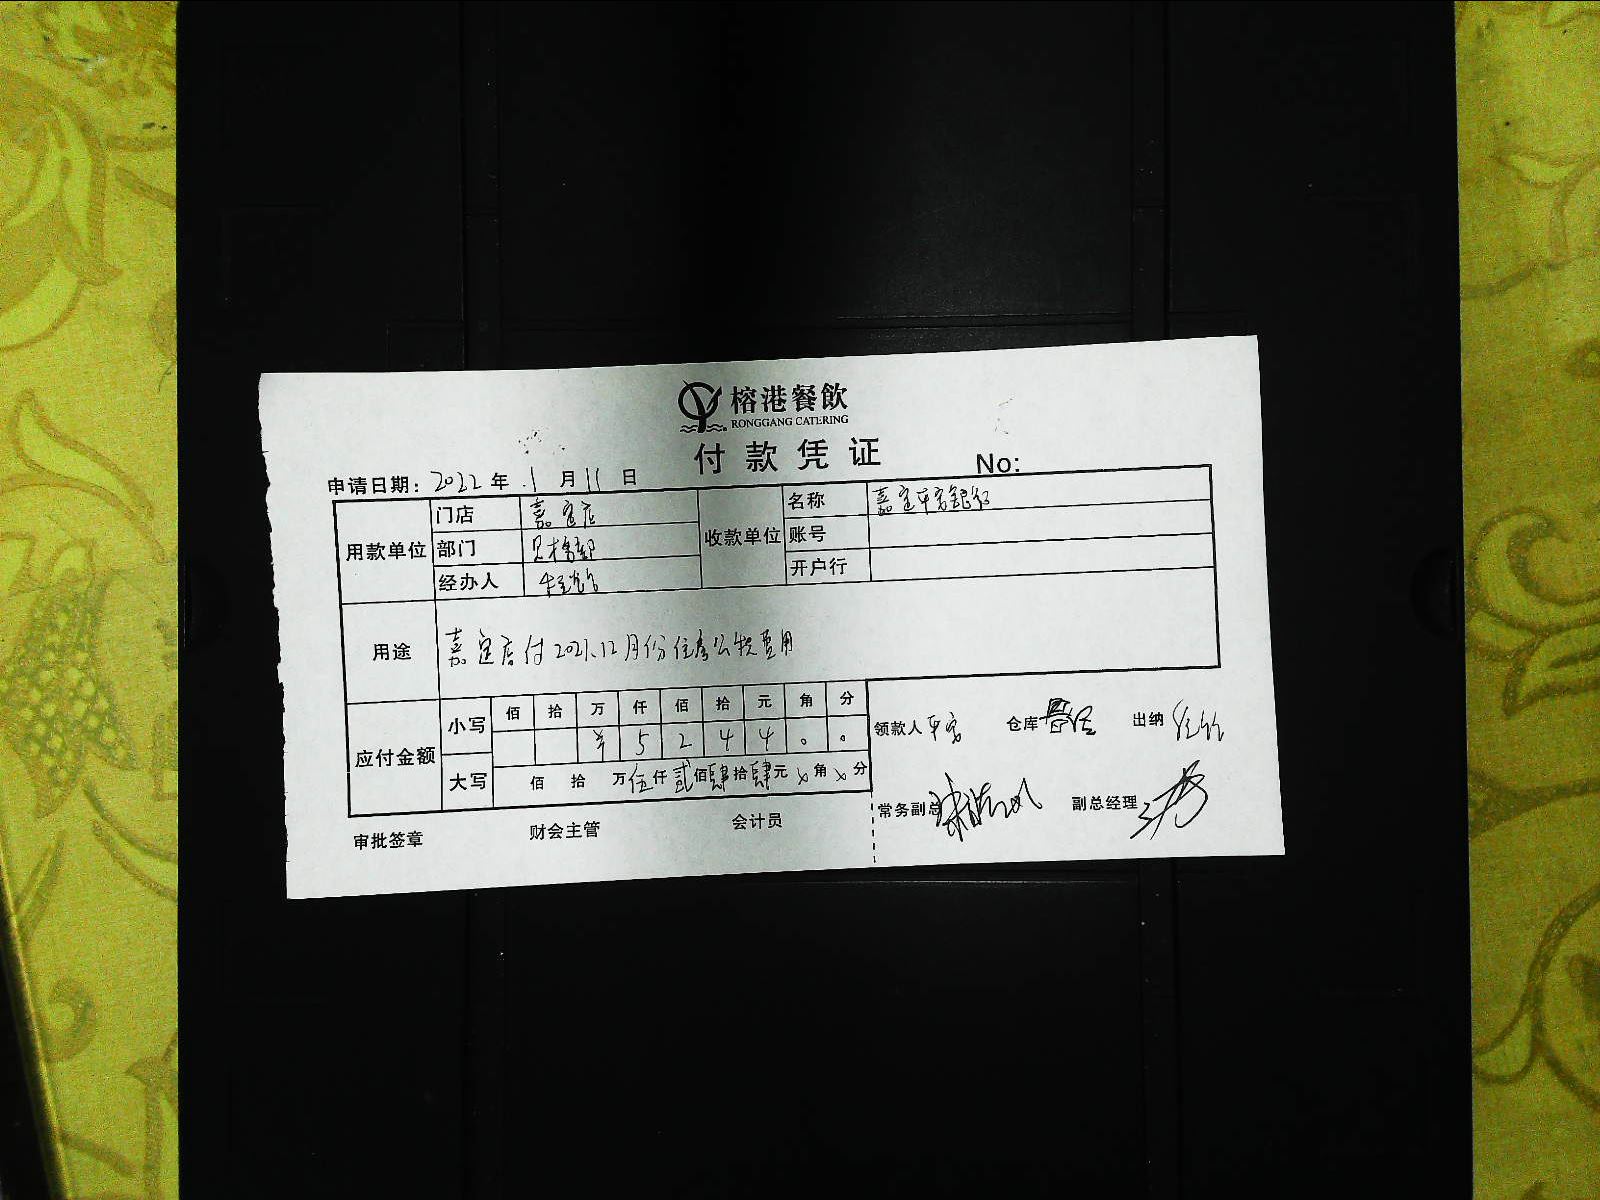 榕港餐飲
RONGGANG CATERING
付款凭证
No:
申请日期: 2022 年 1 月 11 日
用款单位 门店 嘉定店 收款单位 名称 嘉定平安银行
部门 账号
经办人 开户行
用途 嘉定店付2021.12月份住房公积费用
应付金额 小写 佰 拾 万 仟 佰 拾 元 角 分
¥ 5 2 4 4 0 0
大写 佰 拾 万伍仟贰佰肆拾肆元 x 角 x 分
领款人 平安 仓库 出纳
常务副总 副总经理
审批签章 财会主管 会计员